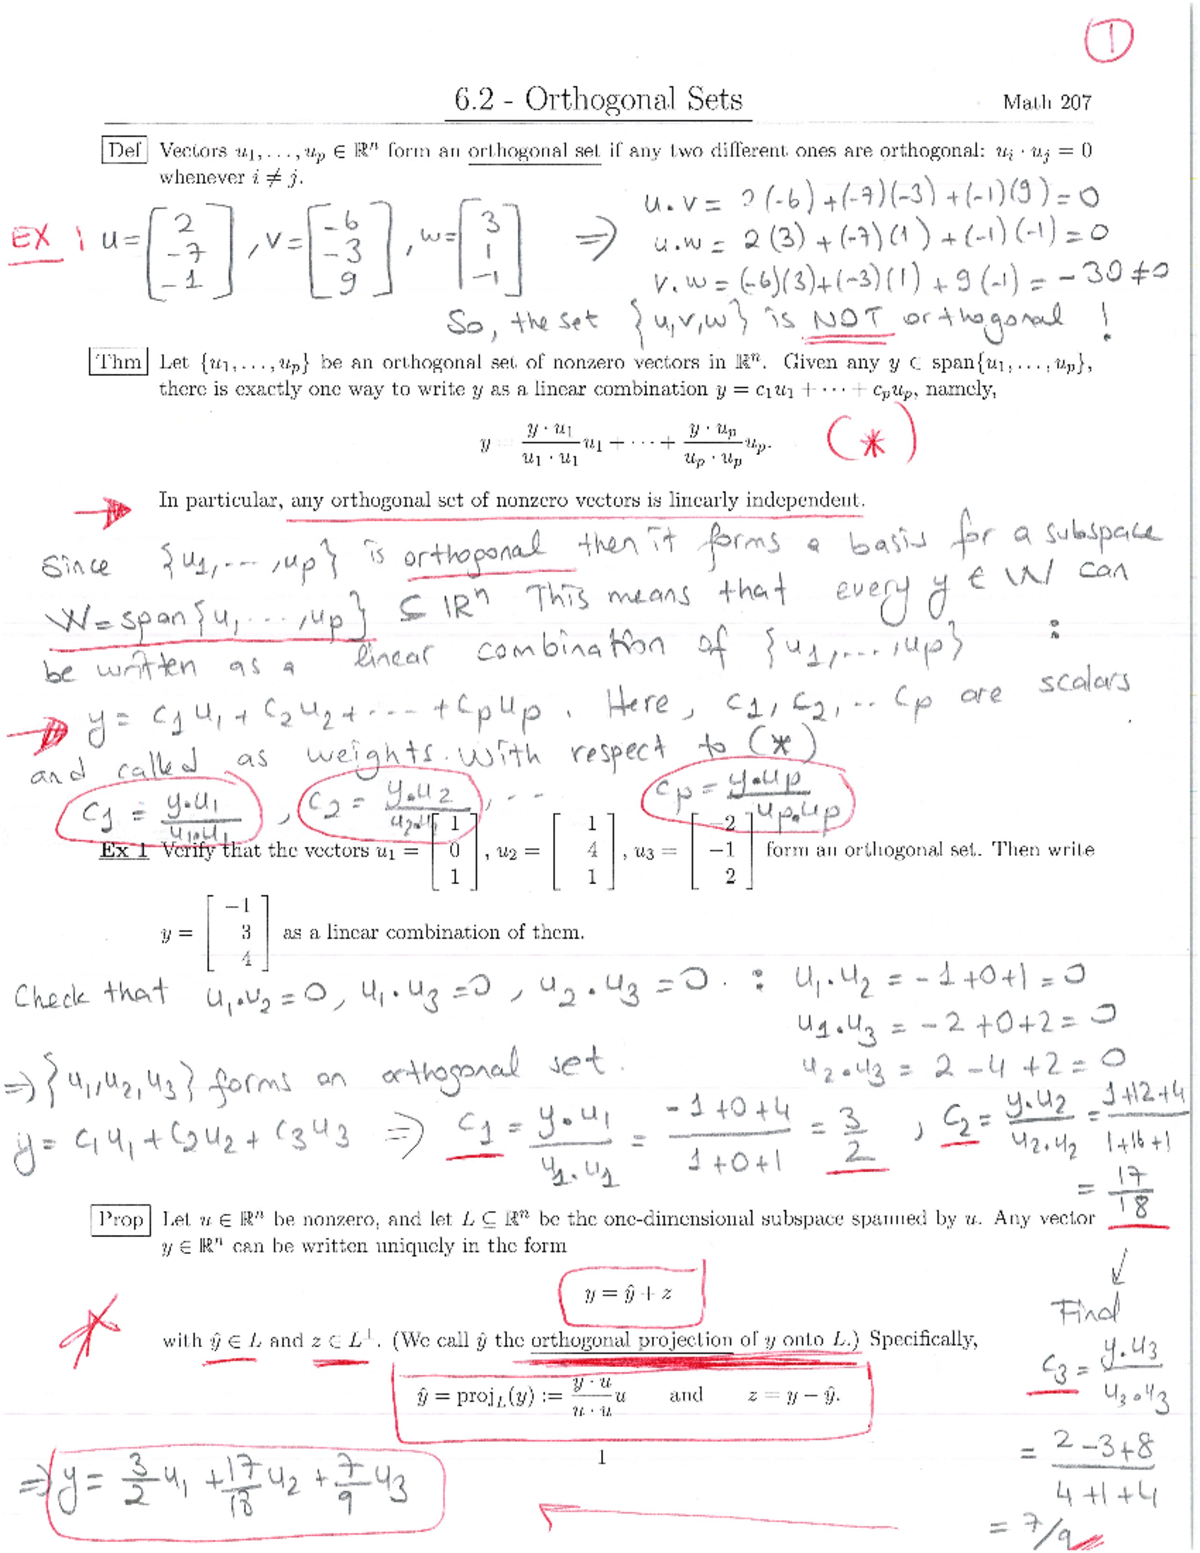 1
6.2 - Orthogonal Sets
Math 207
Def Vectors u₁, . . . , uₚ ∈ ℝⁿ form an orthogonal set if any two different ones are orthogonal: uᵢ · uⱼ = 0
whenever i ≠ j.
EX : u = [2 -7 -1], v = [-6 -3 9], w = [3 1 -1] ⇒
u.v = 2(-6)+(-7)(-3)+(-1)(9)=0
u.w = 2(3)+(-7)(1)+(-1)(-1)=0
v.w = (-6)(3)+(-3)(1)+9(-1) = -30≠0
So, the set {u,v,w} is NOT orthogonal !
Thm Let {u₁, . . . , uₚ} be an orthogonal set of nonzero vectors in ℝⁿ. Given any y ∈ span{u₁, . . . , uₚ},
there is exactly one way to write y as a linear combination y = c₁u₁ + · · · + cₚuₚ, namely,
y = (y · u₁)/(u₁ · u₁) u₁ + · · · + (y · uₚ)/(uₚ · uₚ) uₚ. (*)
In particular, any orthogonal set of nonzero vectors is linearly independent.
Since {u₁, --- ,uₚ} is orthogonal then it forms a basis for a subspace
W=span{u, ... ,uₚ} ⊆ ℝⁿ This means that every y ∈ W can
be written as a linear combination of {u₁,...,uₚ} :
y = c₁u₁+c₂u₂+---+cₚuₚ. Here, c₁, c₂, .. cₚ are scalars
and called as weights. With respect to (*)
c₁ = y.u₁/u₁.u₁ , c₂ = y.u₂/u₂.u₂ , -- cₚ = y.uₚ/uₚ.uₚ
Ex 1 Verify that the vectors u₁ = [1 0 1], u₂ = [1 4 1], u₃ = [-2 -1 2] form an orthogonal set. Then write
y = [-1 3 4] as a linear combination of them.
Check that u₁.u₂=0, u₁.u₃=0, u₂.u₃=0. : u₁.u₂ = -1+0+1=0
u₁.u₃ = -2+0+2=0
⇒{u₁,u₂,u₃} forms an orthogonal set.
u₂.u₃ = 2-4+2=0
y = c₁u₁+c₂u₂+c₃u₃ ⇒ c₁ = y.u₁/u₁.u₁ = (-1+0+4)/(1+0+1) = 3/2 , c₂ = y.u₂/u₂.u₂ = (1+12+4)/(1+16+1)
= 17/18
Prop Let u ∈ ℝⁿ be nonzero, and let L ⊆ ℝⁿ be the one-dimensional subspace spanned by u. Any vector
y ∈ ℝⁿ can be written uniquely in the form
y = ŷ + z
with ŷ ∈ L and z ∈ L⊥. (We call ŷ the orthogonal projection of y onto L.) Specifically,
ŷ = proj_L(y) := (y · u)/(u · u) u and z = y − ŷ.
Find
c₃ = y.u₃/u₃.u₃
= (2-3+8)/(4+1+4)
= 7/9
1
⇒ y = 3/2 u₁ + 17/18 u₂ + 7/9 u₃